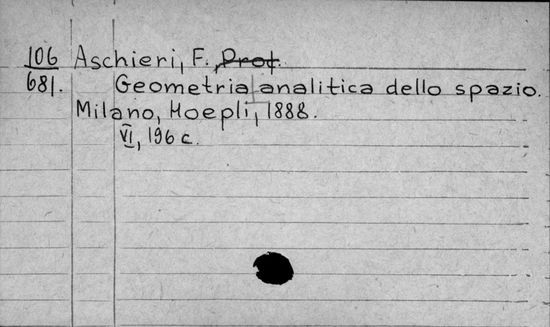 106 Aschieri, F., Prof.
681. Geometria analitica dello spazio.
Milano, Hoepli, 1888.
VI, 196 c.